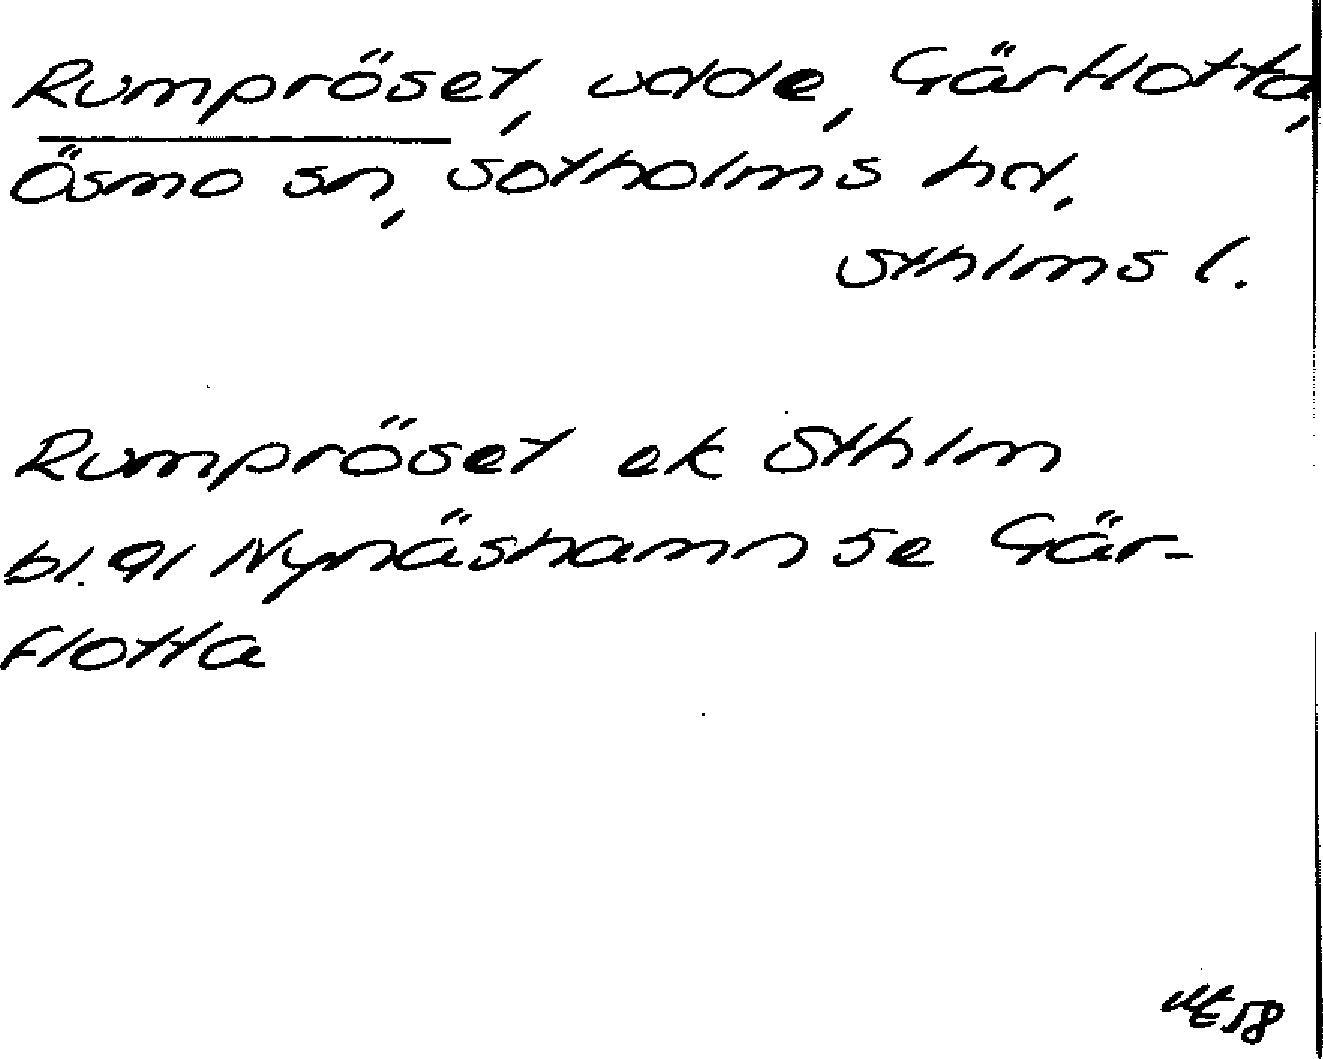 Rumpröset, udde, Gärflotta,
Ösmo sn, Sotholms hd,
Sthlms l.
Rumpröset ek Sthlm
bl. 91 Nynäshamn se Gär-
flotta
58